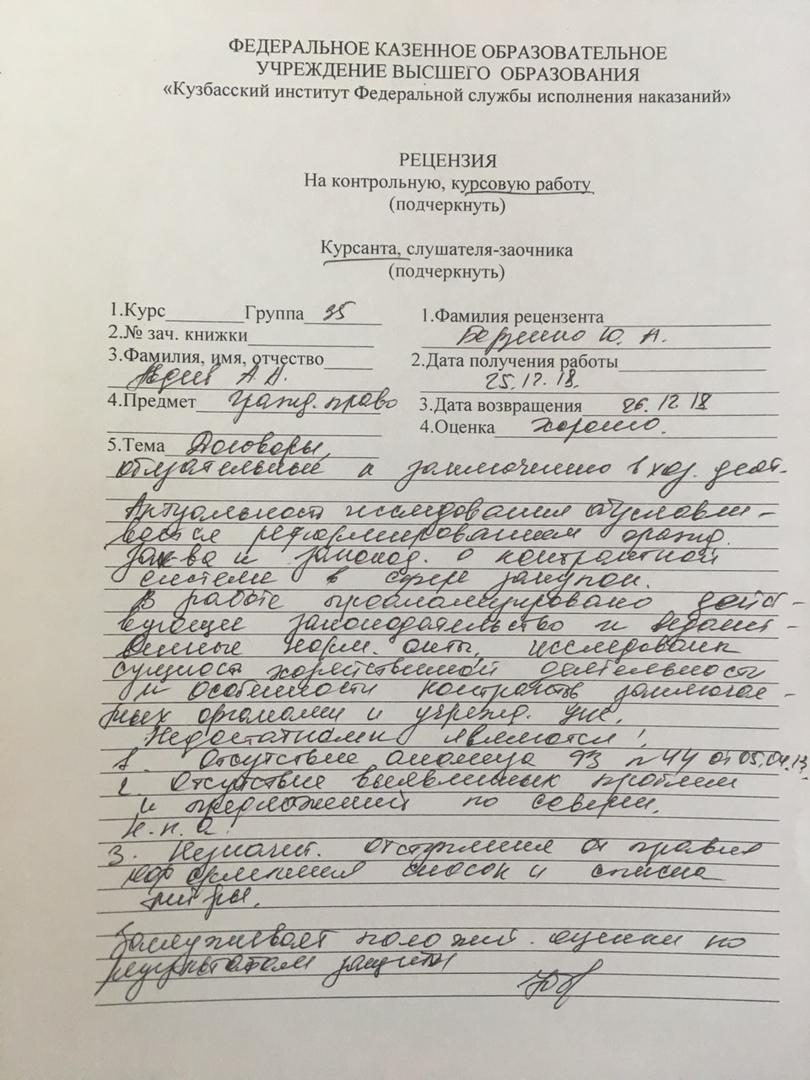 ФЕДЕРАЛЬНОЕ КАЗЕННОЕ ОБРАЗОВАТЕЛЬНОЕ
УЧРЕЖДЕНИЕ ВЫСШЕГО ОБРАЗОВАНИЯ
«Кузбасский институт Федеральной службы исполнения наказаний»
РЕЦЕНЗИЯ
На контрольную, курсовую работу
(подчеркнуть)
Курсанта, слушателя-заочника
(подчеркнуть)
1.Курс Группа 35
2.№ зач. книжки
3.Фамилия, имя, отчество
А.А.
4.Предмет гражд. право
5.Тема Договоры,
1.Фамилия рецензента
Ю. А.
2.Дата получения работы
25.12.18.
3.Дата возвращения 26.12.18
4.Оценка хорошо.
обязательные к заключению в хоз. деят.
Актуальность исследования обусловли-
вается реформированием гражд.
зак-ва и законод. о контрактной
системе в сфере закупок.
В работе проанализировано дейст-
вующее законодательство и ведомст-
венные норм. акты, исследована
сущность хозяйственной деятельности
и особенности контрактов заключае-
мых органами и учрежд. уис.
Недостатками являются:
1. Отсутствие анализа ФЗ №44 от 05.04.13
2. Отсутствие выявленных проблем
и предложений по соверш.
н.п.а.
3. Незначит. отступления от правил
оформления сносок и списка
литры.
Заслуживает положит. оценки по
результатам защиты